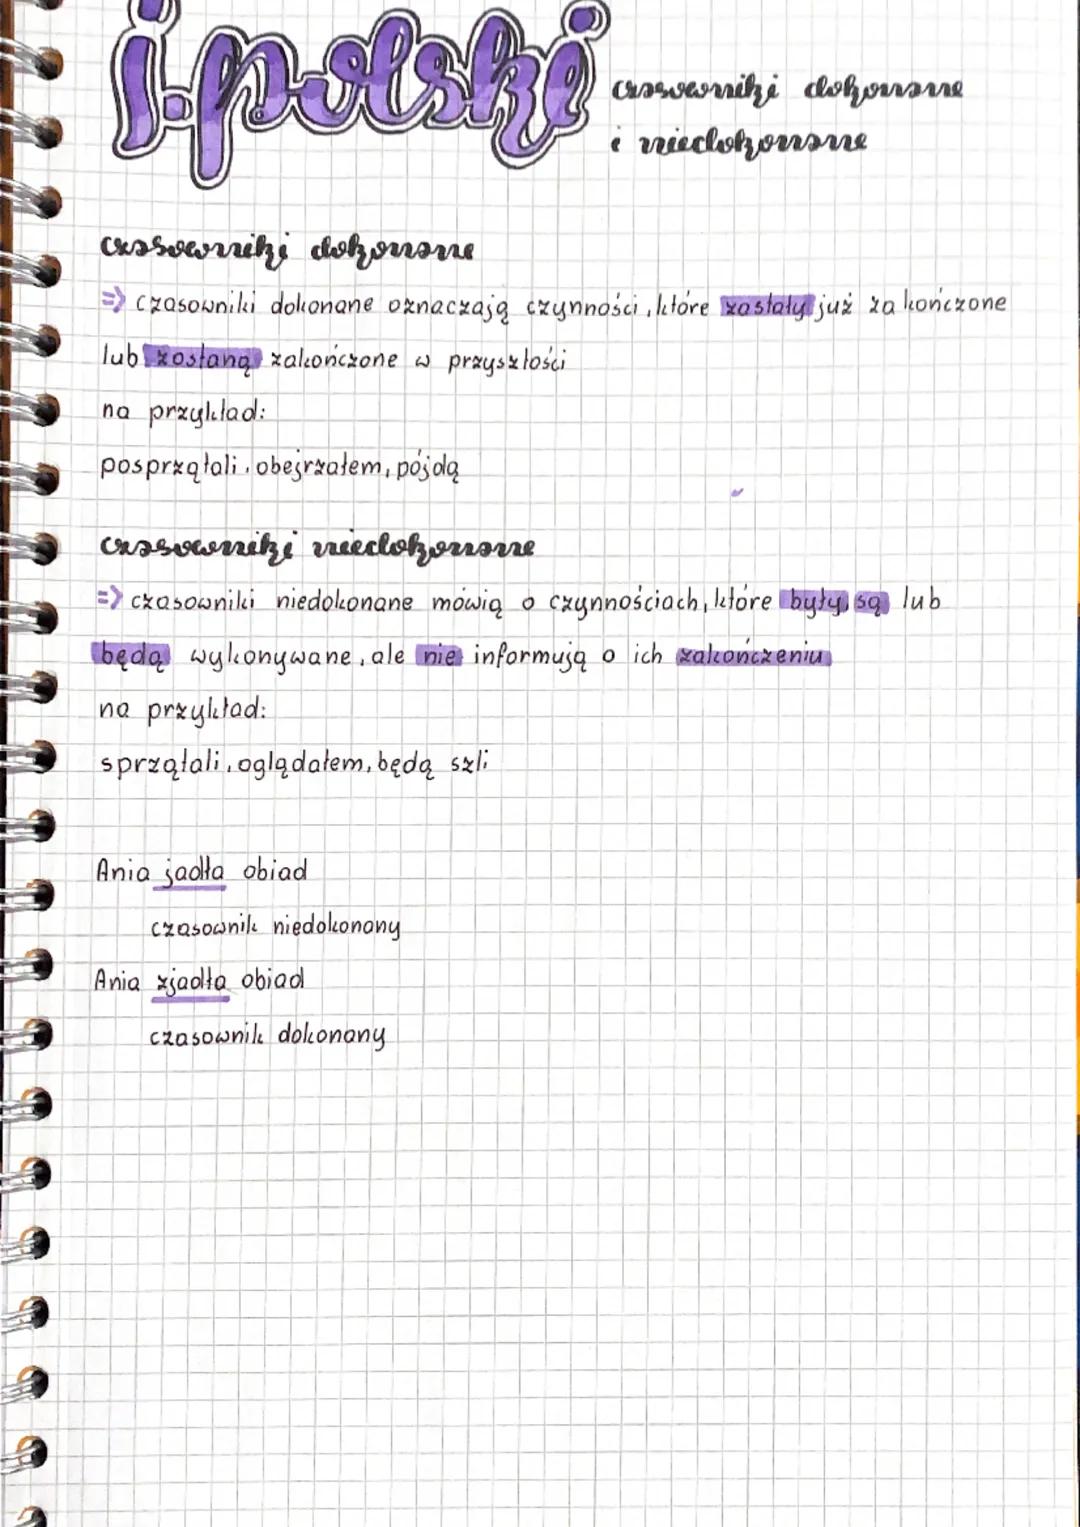 j.polski
czasowniki dokonane
i niedokonane
czasowniki dokonane
=> czasowniki dokonane oznaczają czynności, które zostały już zakończone
lub zostaną zakończone w przyszłości
na przykład:
posprzątali, obejrzałem, pójdą
czasowniki niedokonane
=> czasowniki niedokonane mówią o czynnościach, które były, są lub
będą wykonywane, ale nie informują o ich zakończeniu
na przykład:
sprzątali, oglądałem, będą szli
Ania jadła obiad
czasownik niedokonany
Ania zjadła obiad
czasownik dokonany